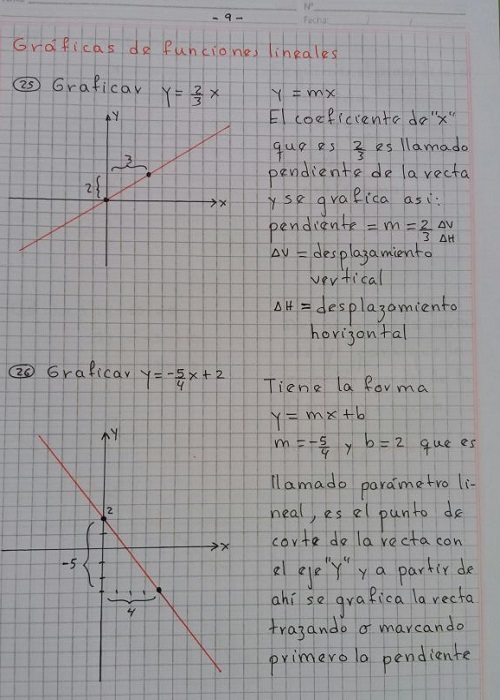 Nº
Fecha:
- 9 -
Gráficas de funciones lineales
25 Graficar y = 2/3 x
y
3
2
x
y = mx
El coeficiente de "x"
que es 2/3 es llamado
pendiente de la recta
y se grafica así:
pendiente = m = 2/3 ΔV/ΔH
ΔV = desplazamiento
vertical
ΔH = desplazamiento
horizontal
26 Graficar y = -5/4 x + 2
y
2
x
-5
4
Tiene la forma
y = mx + b
m = -5/4 y b = 2 que es
llamado parámetro li-
neal, es el punto de
corte de la recta con
el eje "y" y a partir de
ahí se grafica la recta
trazando o marcando
primero la pendiente